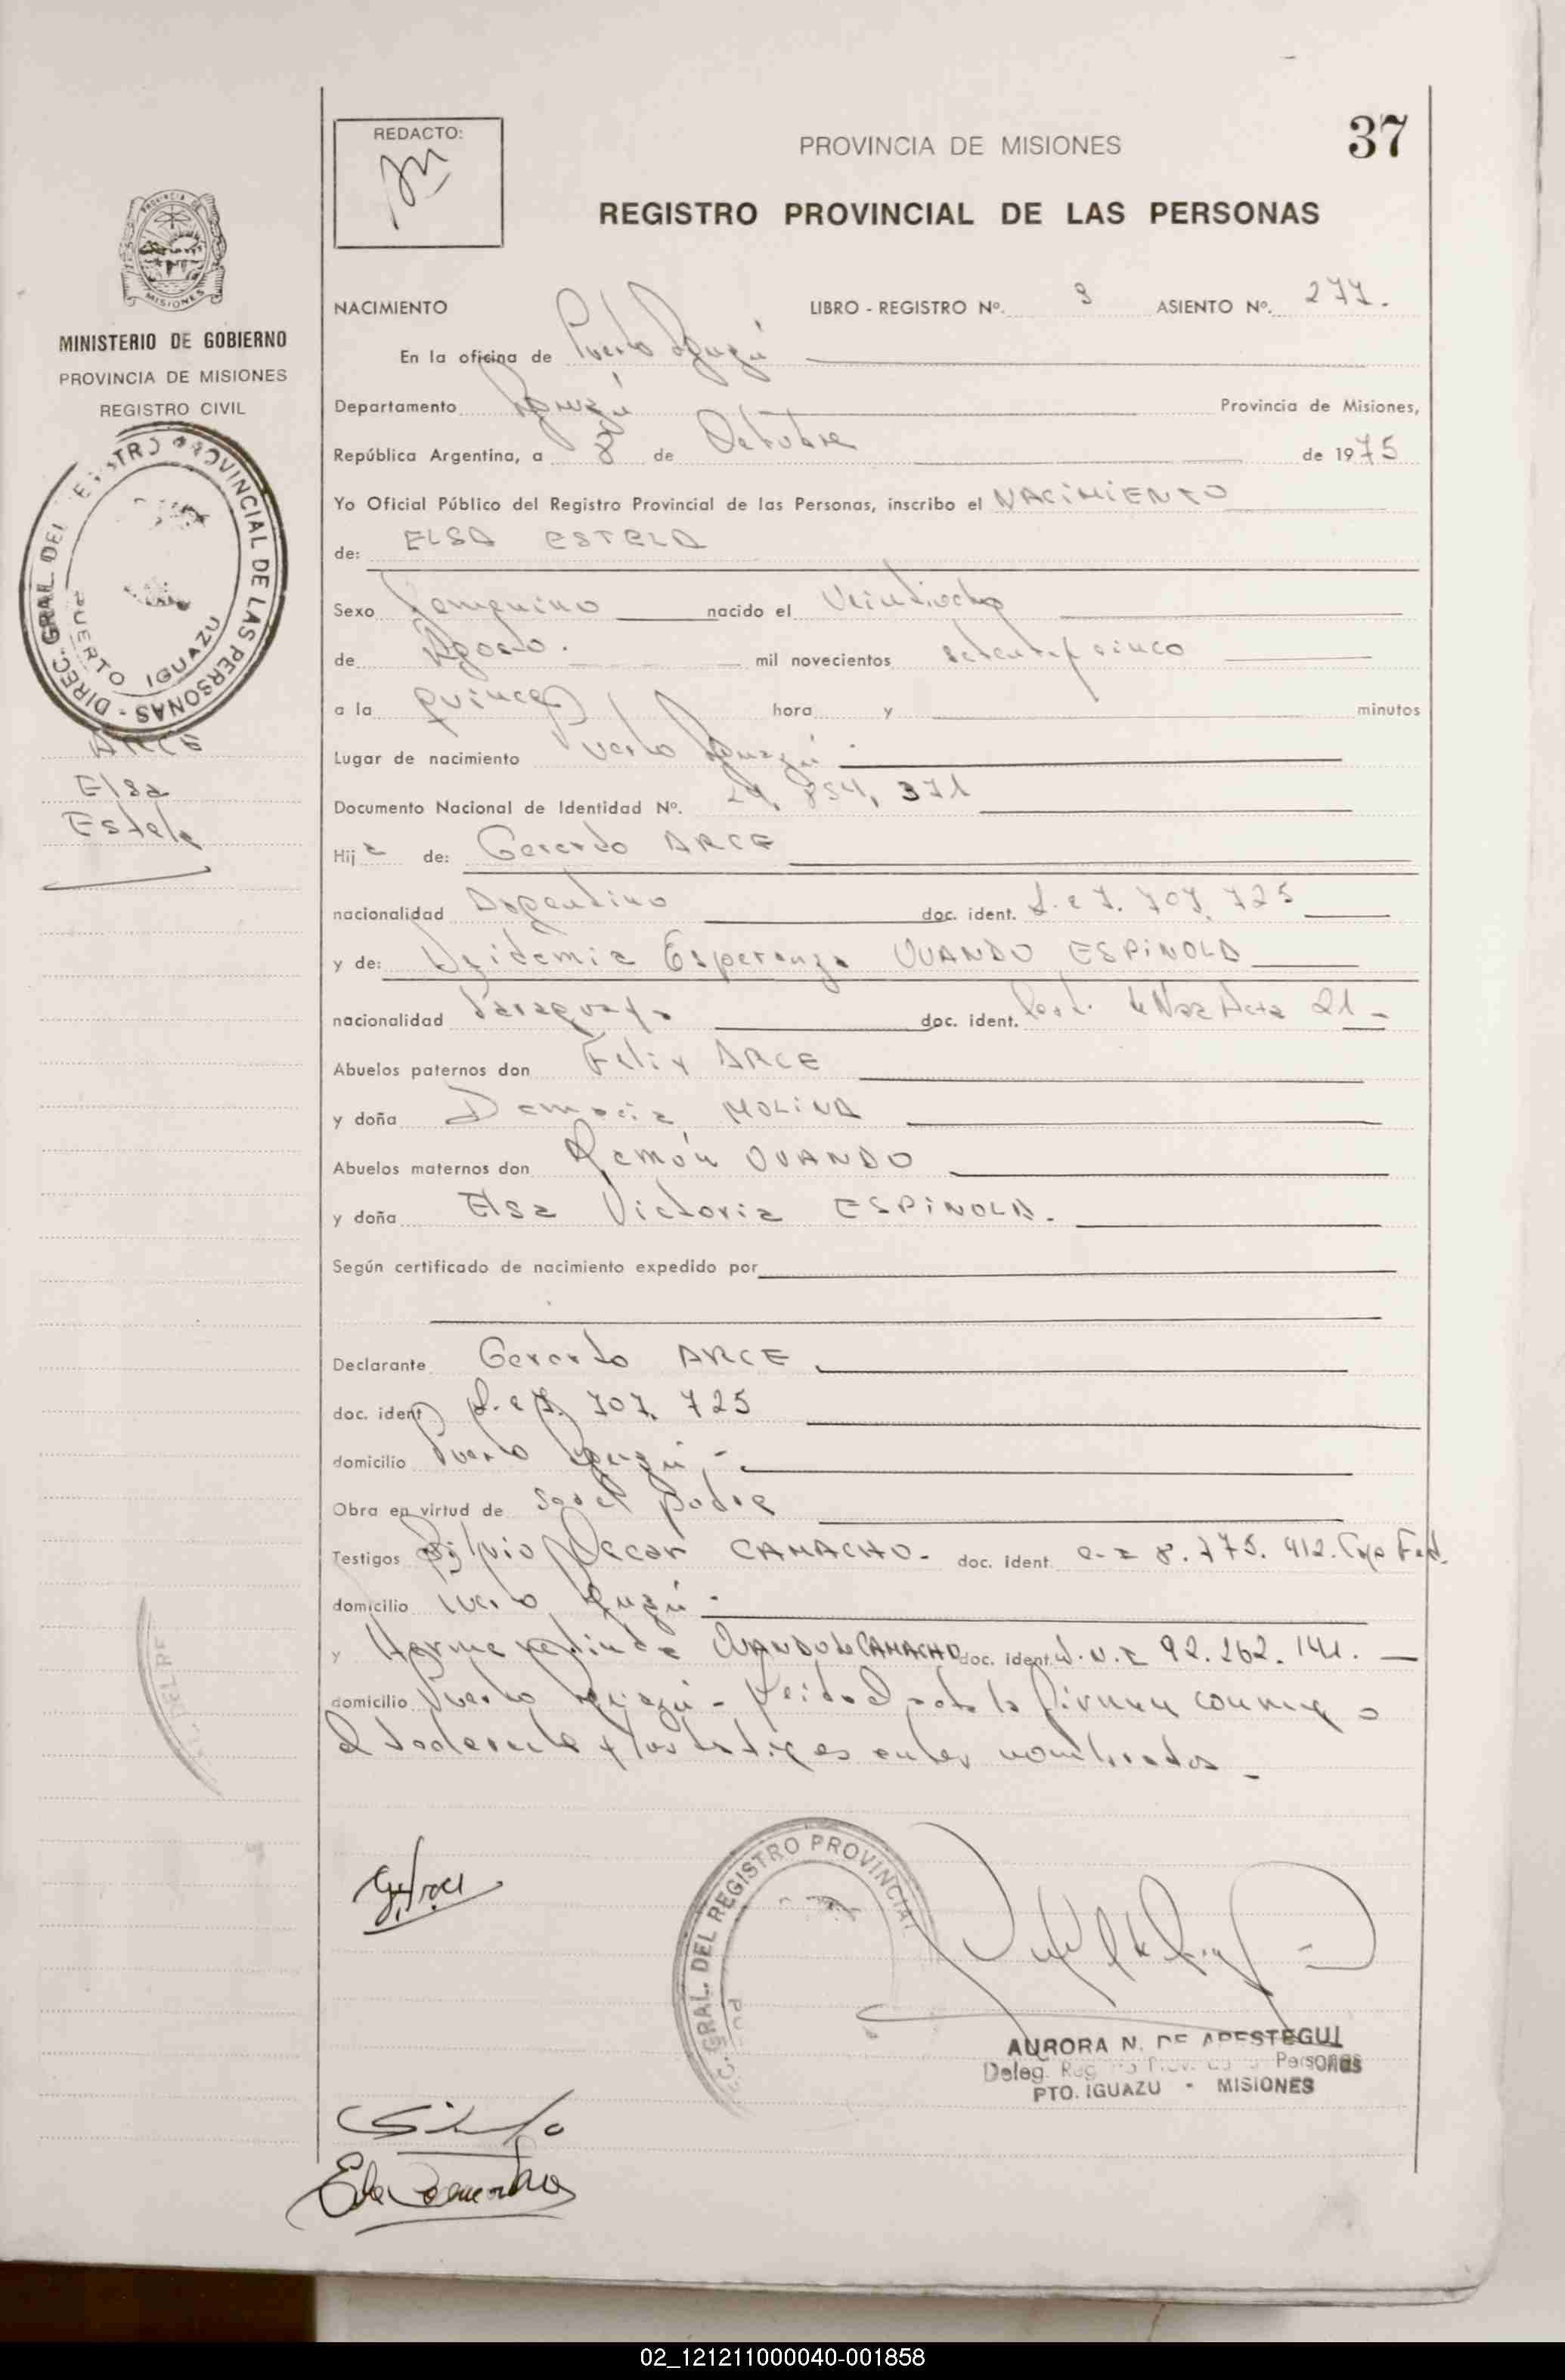 37
REDACTO:
PROVINCIA DE MISIONES
REGISTRO PROVINCIAL DE LAS PERSONAS
MISIONES
MINISTERIO DE GOBIERNO
PROVINCIA DE MISIONES
REGISTRO CIVIL
DIREC. GRAL. DEL REGISTRO PROVINCIAL DE LAS PERSONAS -
PUERTO IGUAZU
ARCE
Elsa
Estela
NACIMIENTO LIBRO - REGISTRO Nº. 9 ASIENTO Nº. 277.
En la oficina de Puerto Iguazú
Departamento Iguazú Provincia de Misiones,
República Argentina, a 8 de Octubre de 1975
Yo Oficial Público del Registro Provincial de las Personas, inscribo el NACIMIENTO
de: ELSA ESTELA
Sexo Femenino nacido el Veintiocho
de Agosto. mil novecientos setenta y cinco
a la quince hora y minutos
Lugar de nacimiento Puerto Iguazú.
Documento Nacional de Identidad Nº. 24.854.371
Hija de: Gerardo ARCE
nacionalidad Argentino doc. ident. L.e 7.707.725
y de: Esperanza OVANDO ESPINOLA
nacionalidad Paraguaya doc. ident. de Nac Acta 21 -
Abuelos paternos don Felix ARCE
y doña Damacia MOLINA
Abuelos maternos don Ramón OVANDO
y doña Elsa Victoria ESPINOLA.
Según certificado de nacimiento expedido por
Declarante Gerardo ARCE
doc. ident L.e 7.707.725
domicilio Puerto Iguazú.-
Obra en virtud de ser el padre
Testigos Silvio Oscar CAMACHO- doc. ident 8.775.912. Exp Fed.
domicilio Puerto Iguazú.
y Hermenelinda OVANDO de CAMACHO doc. ident. D.N.I 92.262.141.
domicilio Puerto Iguazú - Leida el acta la firman conmigo
el declarante y los testigos antes nombrados -
GRAL. DEL REGISTRO PROVINCIAL
AURORA N. DE APESTEGUI
Deleg. Reg Personas
PTO. IGUAZU - MISIONES
02_121211000040-001858